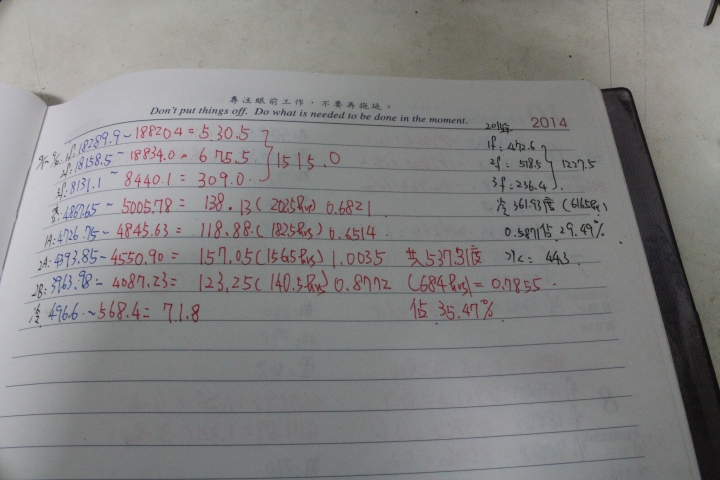 專注眼前工作，不要再拖延。
Don't put things off. Do what is needed to be done in the moment.
2014
1f: 18289.9~18820.4 = 530.5
2f: 18158.5~18834.0 = 675.5 1515.0
3f: 8131.1~8440.1 = 309.0
4867.65~5005.78 = 138.13 (202.5hrs) 0.6821
1A: 4726.75~4845.63 = 118.88 (182.5hrs) 0.6514
2A: 4393.85~4550.90 = 157.05 (156.5hrs) 1.0035 共537.31度
2B: 3963.98~4087.23 = 123.25 (140.5hrs) 0.8772 (684hrs) = 0.7855
冷 496.6~568.4 = 71.8 佔 35.47%
1f = 472.6
2f = 518.5 1227.5
3f = 236.4
冷 361.93度 (616.5hrs)
0.5871 佔 29.49%
冷 = 44.3